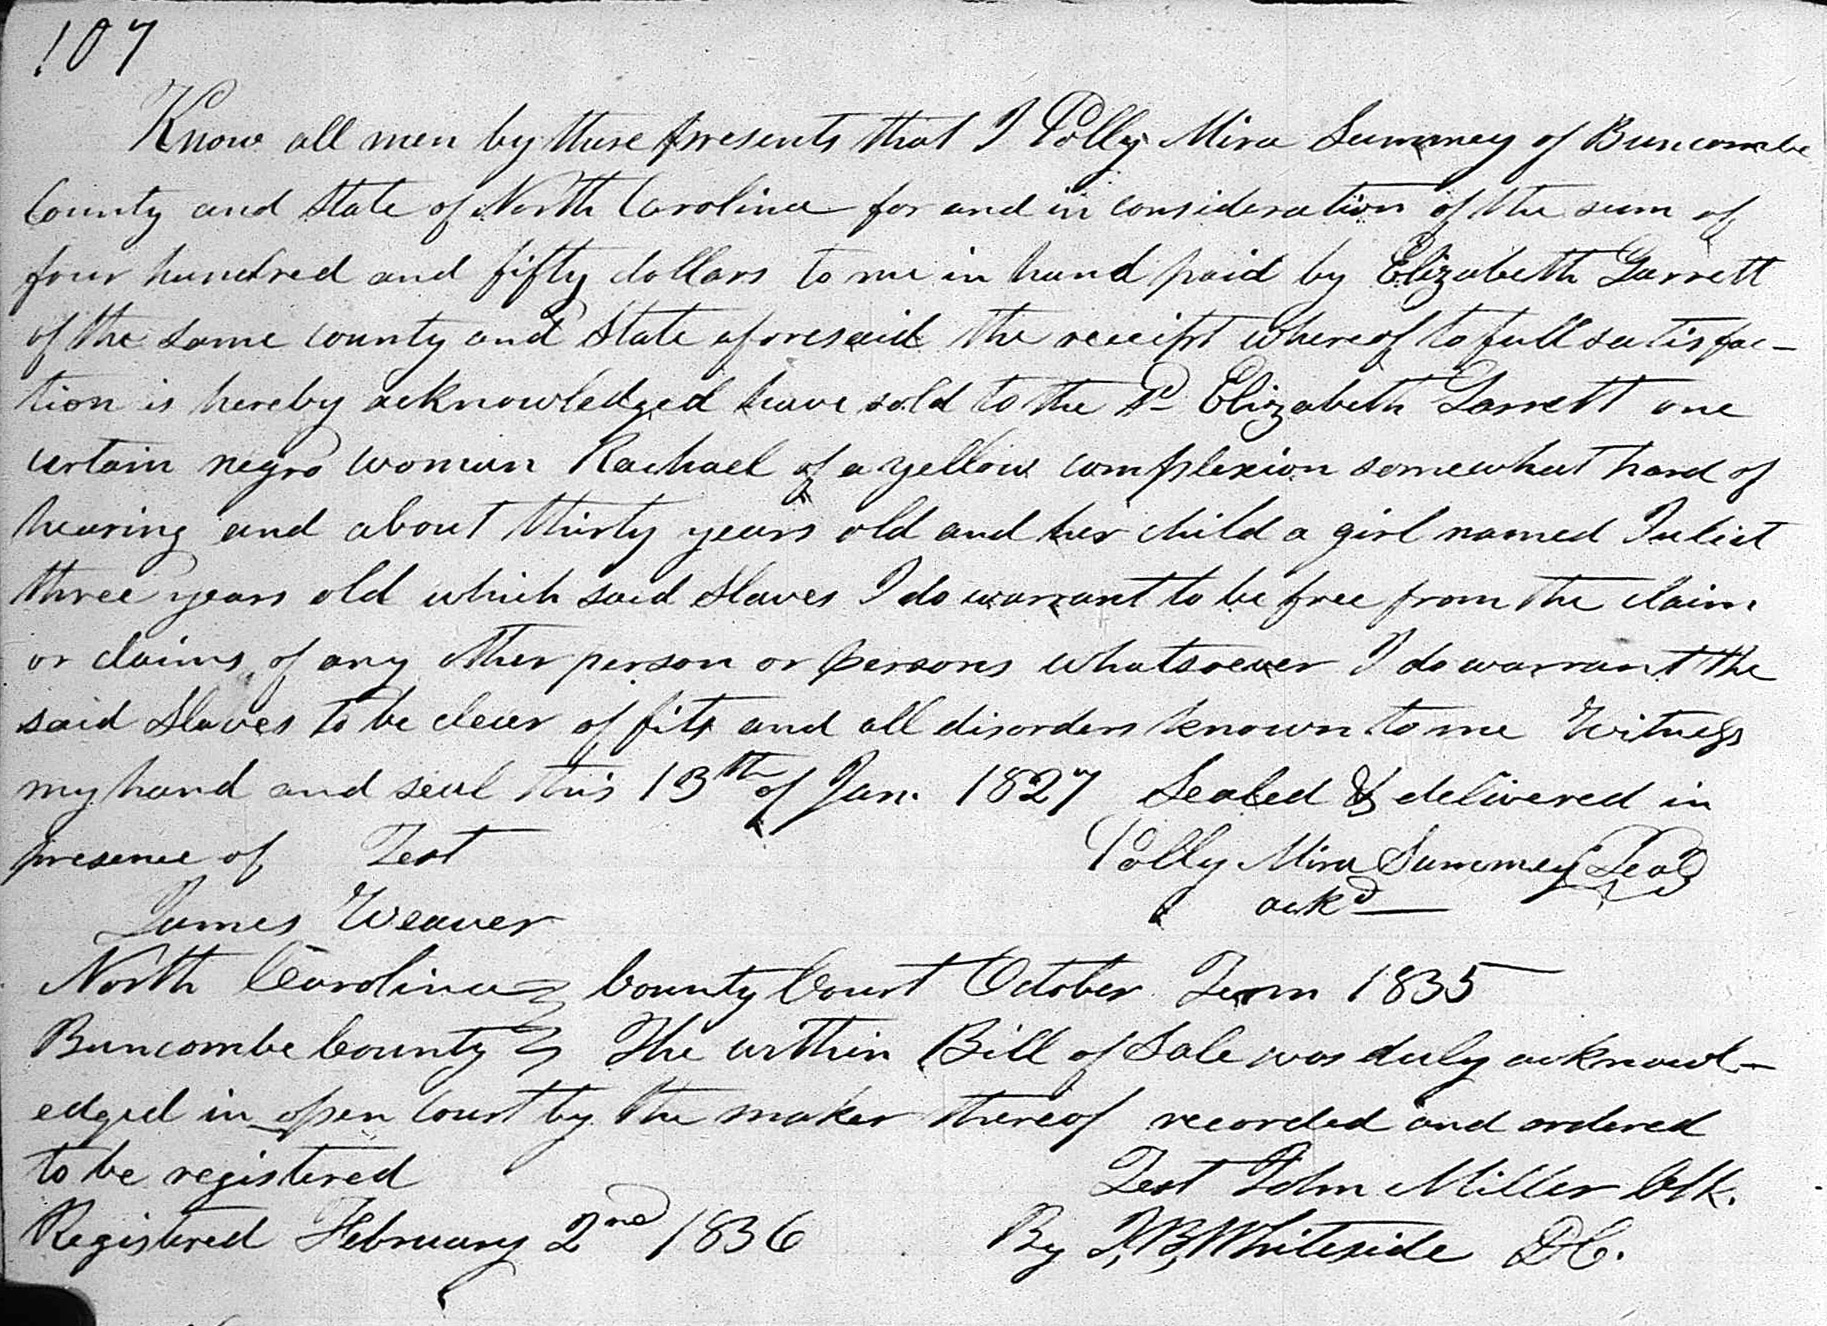 107
Know all men by these presents that I Polly Mira Summey of Buncombe
County and State of North Carolina for and in consideration of the sum of
four hundred and fifty dollars to me in hand paid by Elizabeth Garrett
of the same county and State aforesaid the receipt whereof to full satisfac-
tion is hereby acknowledged have sold to the Sd Elizabeth Garrett one
certain negro woman Rachael of a yellow complexion somewhat hard of
hearing and about thirty years old and her child a girl named Juliet
three years old which said Slaves I do warrant to be free from the claim
or claims of any other person or persons whatsoever I do warrant the
said Slaves to be clear of fits and all disorders known to me Witness
my hand and seal this 13th of Jan. 1827 Sealed & delivered in
presence of Test Polly Mira Summey Seal
James Weaver ackd
North Carolina County Court October Term 1835
Buncombe County The within Bill of Sale was duly acknowl-
edged in open Court by the maker thereof recorded and ordered
to be registered Test John Miller Clk.
Registered February 2nd 1836 By J.B. Whiteside DC.